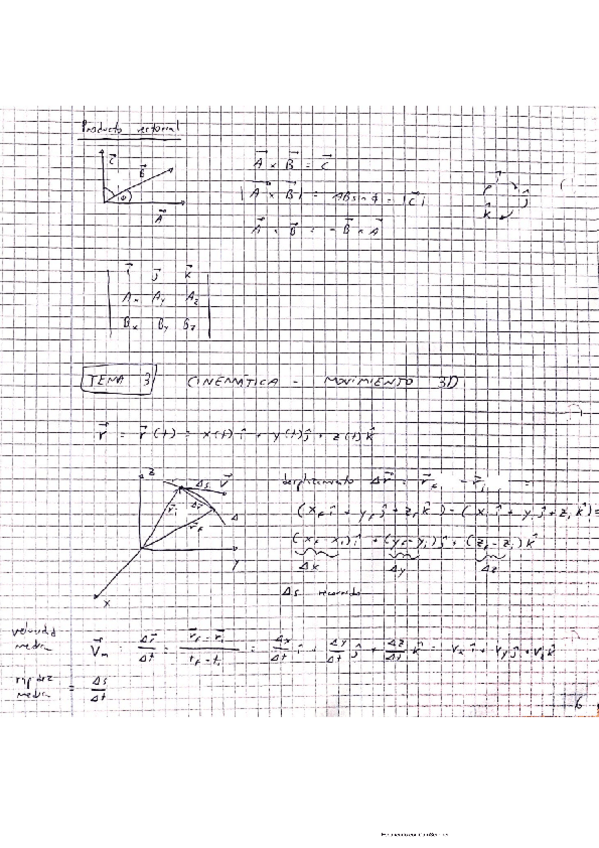 Producto vectorial
C B φ A
A⃗ × B⃗ = C⃗
|A⃗ × B⃗| = AB sin φ = |C⃗|
A⃗ × B⃗ = - B⃗ × A⃗
î ĵ k̂
i⃗ j⃗ k⃗
Ax Ay Az
Bx By Bz
TEMA 3 CINEMÁTICA - MOVIMIENTO 3D
r⃗ = r⃗(t) = x(t) î + y(t) ĵ + z(t) k̂
z Δs V⃗
r⃗i Δr⃗ r⃗f
y
x
desplazamiento Δr⃗ = r⃗f - r⃗i =
(xf î + yf ĵ + zf k̂) - (xi î + yi ĵ + zi k̂) =
(xf - xi) î + (yf - yi) ĵ + (zf - zi) k̂
Δx Δy Δz
Δs recorrido
velocidad
media
V⃗m = Δr⃗/Δt = (r⃗f - r⃗i)/(tf - ti) = Δx/Δt î + Δy/Δt ĵ + Δz/Δt k̂ = Vx î + Vy ĵ + Vz k̂
rapidez
media = Δs/Δt
6